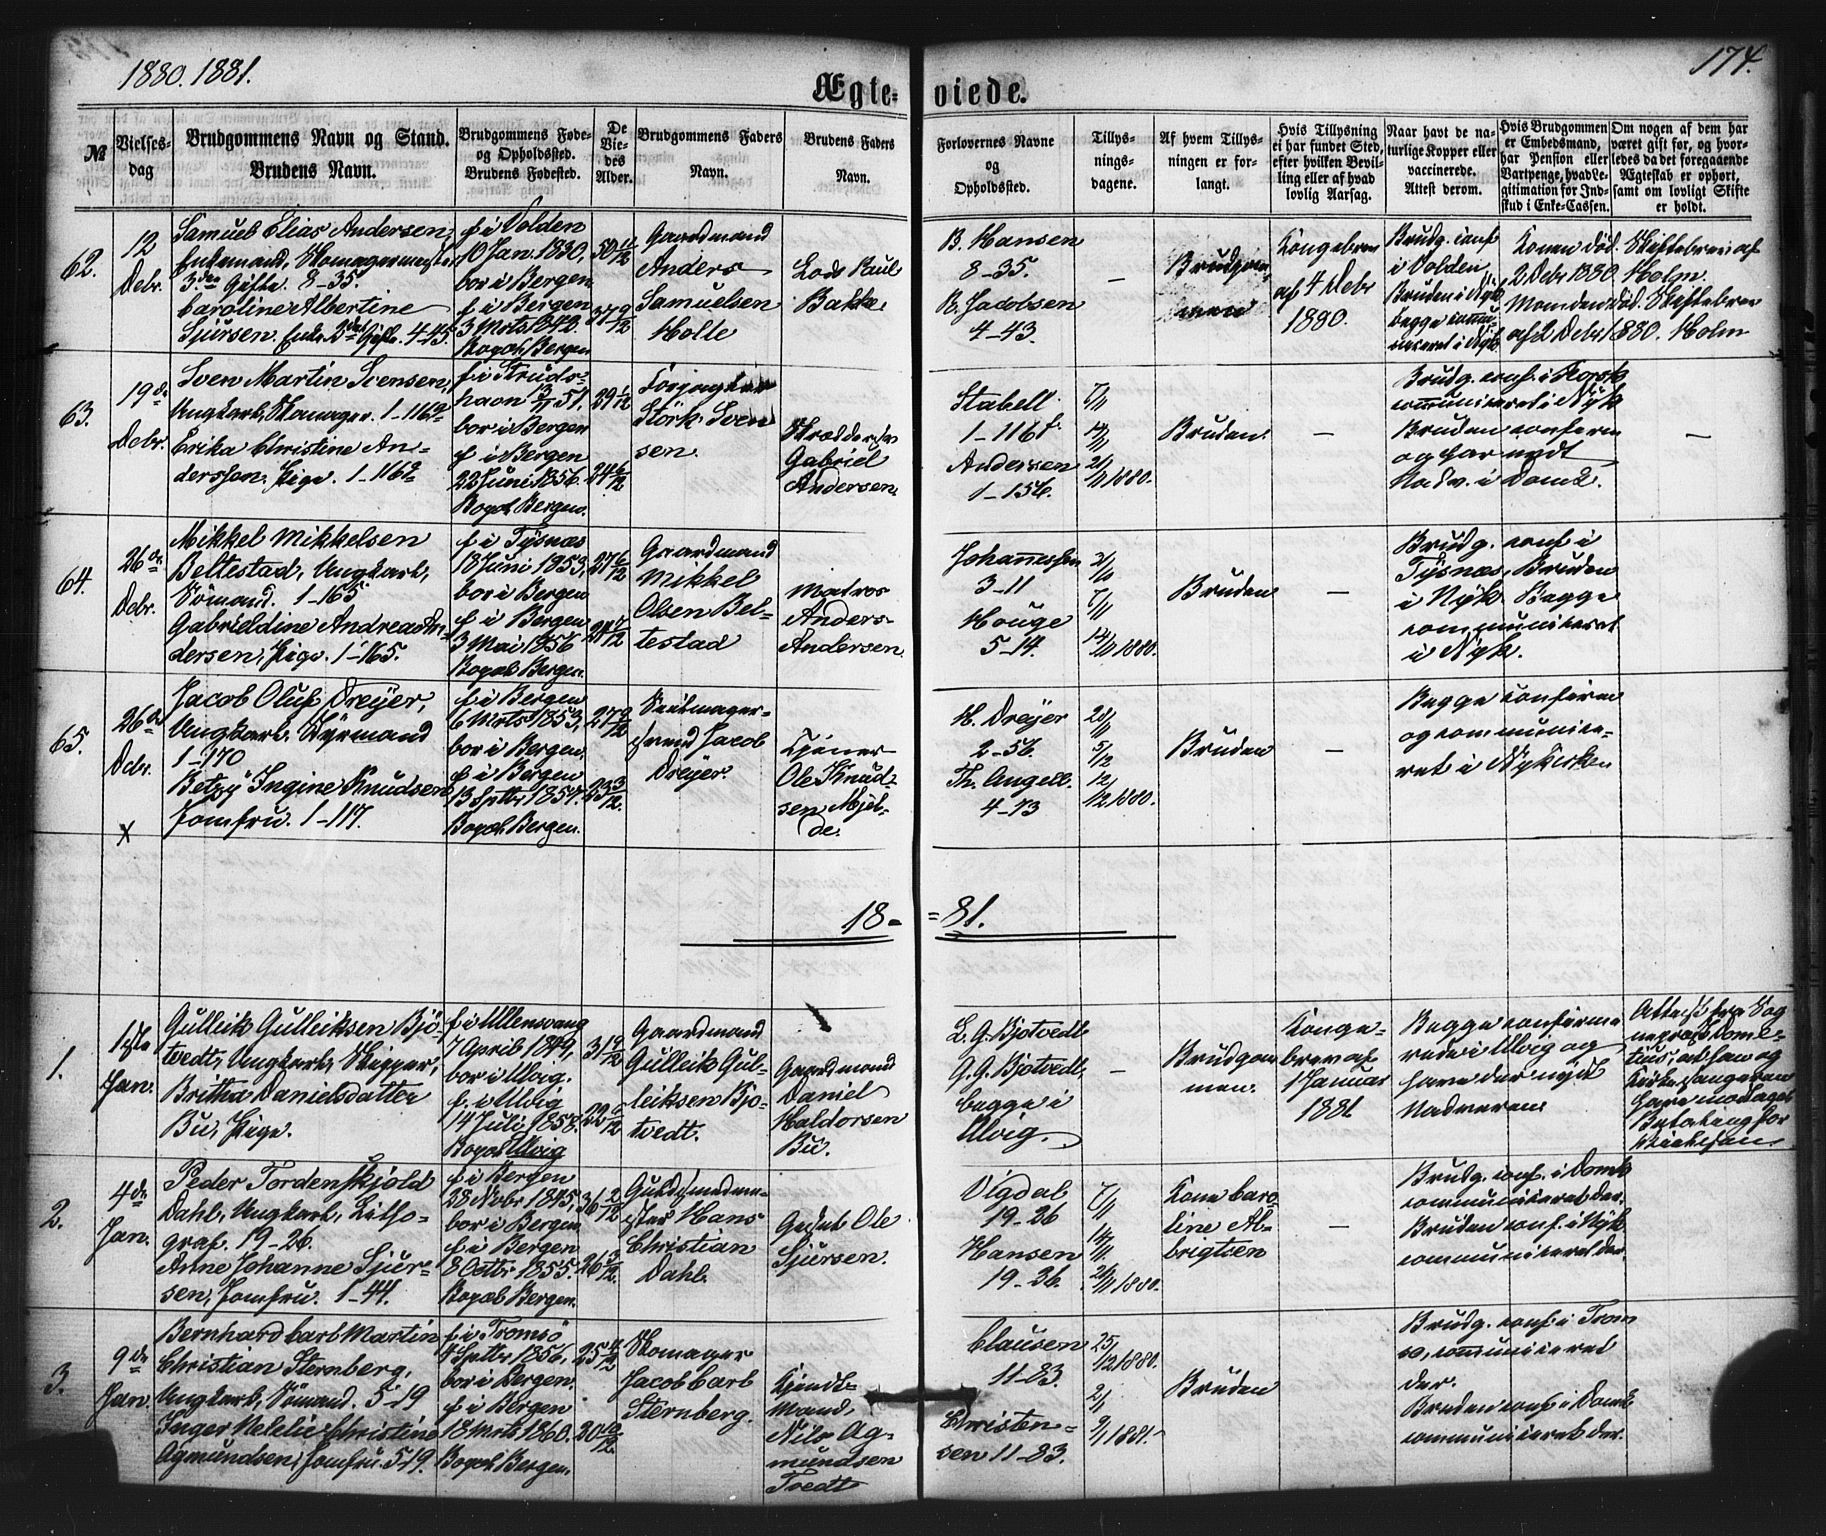 1880. 1881.
174.
Ægte= viede.
№
Vielses-
dag
Brudgommens Navn og Stand.
Brudens Navn.
Brudgommens Føde-
og Opholdssted.
Brudens Fødested.
De
Vie-
des
Alder.
Brudgommens Faders
Navn.
Brudens Faders
Navn.
Forlovernes Navne
og
Opholdssted.
Tillys-
nings-
dagene.
Af hvem Tillys-
ningen er for-
langt.
Hvis Tillysning
ei har fundet Sted,
efter hvilken Bevil-
ling eller af hvad
lovlig Aarsag.
Naar havt de na-
turlige Kopper eller
vaccinerede.
Attest derom.
Hvis Brudgommen
er Embedsmand,
har Pension eller
Vartpenge, hvad Le-
gitimation for Ind-
skud i Enke-Cassen.
Om nogen af dem har
været gift før, og hvor-
ledes da det foregaaende
Ægteskab er ophørt,
samt om lovligt Skifte
er holdt.
62.
12
Debr.
Samuel Elias Andersen,
Enkemand, Skomagermester
3die Gifte. 8-35.
Caroline Albertine
Sjursen. Enke. 2det Gifte. 4-45.
f. i Volden
10 Jan. 1830,
bor i Bergen
f. i Bergen
3 Marts 1843.
Bopæl Bergen
50 11/12
37 9/12
Gaardmand
Anders
Samuelsen
Holte
Lods Paul
Bakke
B. Hansen
8-35.
B. Jacobsen
4-43.
—
Brudgom
men
Kongebrev
af 4 Debr
1880.
Brudg. conf
i Volden
Bruden i Nyk.
begge commu
niceret i Nyk
Konen død. Skiftebrev af
2 Debr 1880. Holm.
Manden død. Skiftebrev
af 2 Debr 1880. Holm
63.
19de
Debr.
Sven Martin Svensen,
Ungkarl, Skomager. 1-116a
Erika Christine An-
dersen. Pige. 1-116a
f. i Struds-
havn 3/11 51,
bor i Bergen
f. i Bergen
22 Juni 1856.
Bopæl Bergen.
29 1/12
24 6/12
Störk Sven
sen.
Skrædder
Gabriel
Andersen.
Stabell
1-116 f.
Andersen
1-156.
7/11
14/11
21/11 1880.
Bruden
—
Brudg. conf. i Korsk
communiceret i Nyk
Bruden confirm
og har nydt
Nadv. i Domk.
—
64.
26de
Debr.
Mikkel Mikkelsen
Beltestad, Ungkarl,
Sømand. 1-165
Gabrieldine Andrea An-
dersen, Pige. 1-165.
f. i Tysnæs
18 Juni 1853,
bor i Bergen
f. i Bergen
3 Mai 1856
Bopæl Bergen.
27 6/12
24 7/12
Gaardmand
Mikkel
Olsen Bel-
testad
Matros
Anders
Andersen.
Johannessen
3-11
Houge
5-14.
31/10
7/11
14/11 1880.
Bruden
—
Brudg. conf i
Tysnæs, Bruden
i Nyk. Begge
communiceret
i Nyk.
65.
26de
Debr.
Jacob Oluf Dreyer,
Ungkarl. Styrmand
1-170
Betzy Ingine Knudsen
Jomfru. 1-117.
X
f. i Bergen
6 Marts 1853,
bor i Bergen,
f. i Bergen
13 Septbr 1857.
Bopæl Bergen.
27 9/12
23 3/12
Seilmager-
svend Jacob
Dreyer
Tjener
Ole Knud-
sen Mjel-
de.
H. Dreyer
2-56.
Th. Angell.
4-13
28/11
5/12
12/12 1880.
Bruden
—
Begge confirm
og communice-
ret i Nykirken
18= =81.
1.
1ste
Jan.
Gulleik Gulleiksen Bjo-
tvedt, Ungkarl, Skipper,
Britha Danielsdatter
Bu, Pige.
f. i Ullensvang
7 April 1849,
bor i Ulvig.
f. i Ulvig
14 Juli 1858.
Bopæl Ulvig
31 9/12
22 6/12
Gaardmand
Gulleik Gul-
leiksen Bjo-
tvedt.
Gaardmand
Daniel
Haldorsen
Bu.
L. G. Bjotvedt
G. G. Bjotvedt,
begge i
Ulvig.
—
Brudgom
men.
Konge-
brev af
1 Januar
1881
Begge confirme
rede i Ulvig og
have der nydt
Nadveren
Attest fra Sog
nepræst Dome-
tius, at han og
Kirkesangeren
have modtaget
Betaling for
Vielsen
2.
4de
Jan.
Peder Tordenskjold
Dahl, Ungkarl, Litho-
graf. 19-26.
Anne Johanne Sjur-
sen, Jomfru. 1-44.
f. i Bergen
28 Novbr 1845,
bor i Bergen,
f. i Bergen
8 Octbr 1855.
Bopæl Bergen.
36 2/12
26 3/12
Guldsmedme-
ster Hans
Christian
Dahl.
Ole
Sjursen.
Vigdal
19-26
Hansen
19-36.
7/11
14/11
21/11 1880.
Kone Caro
line Al-
brigtsen
—
Brudg. conf. i Domk
communiceret der.
Bruden conf. i Nyk
communiceret der.
3.
9de
Jan.
Bernhard Carl Martin
Christian Sternberg,
Ungkarl, Sømand. 5-19
Inger Nelelie Christine
Agmundsen, Jomfru. 5-19.
f. i Tromsö
Septbr 1856,
bor i Bergen.
f. i Bergen
18 Marts 1860.
Bopæl Bergen.
25 4/12
20 10/12
Skomager
Jacob Carl
Sternberg.
Mand,
Nils Ag-
mundsen
Tvedt
Clausen
11-83.
Christen-
sen 11-83.
25/12 1880.
2/1
9/1 1881.
Bruden
Brudg. conf i Trom
sø, communiceret
der.
Bruden conf. i Domk
communiceret der.